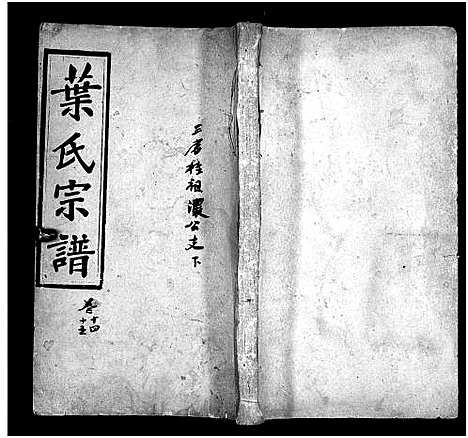 葉氏宗譜
卷十四
十五
三房桂祖濃公支下